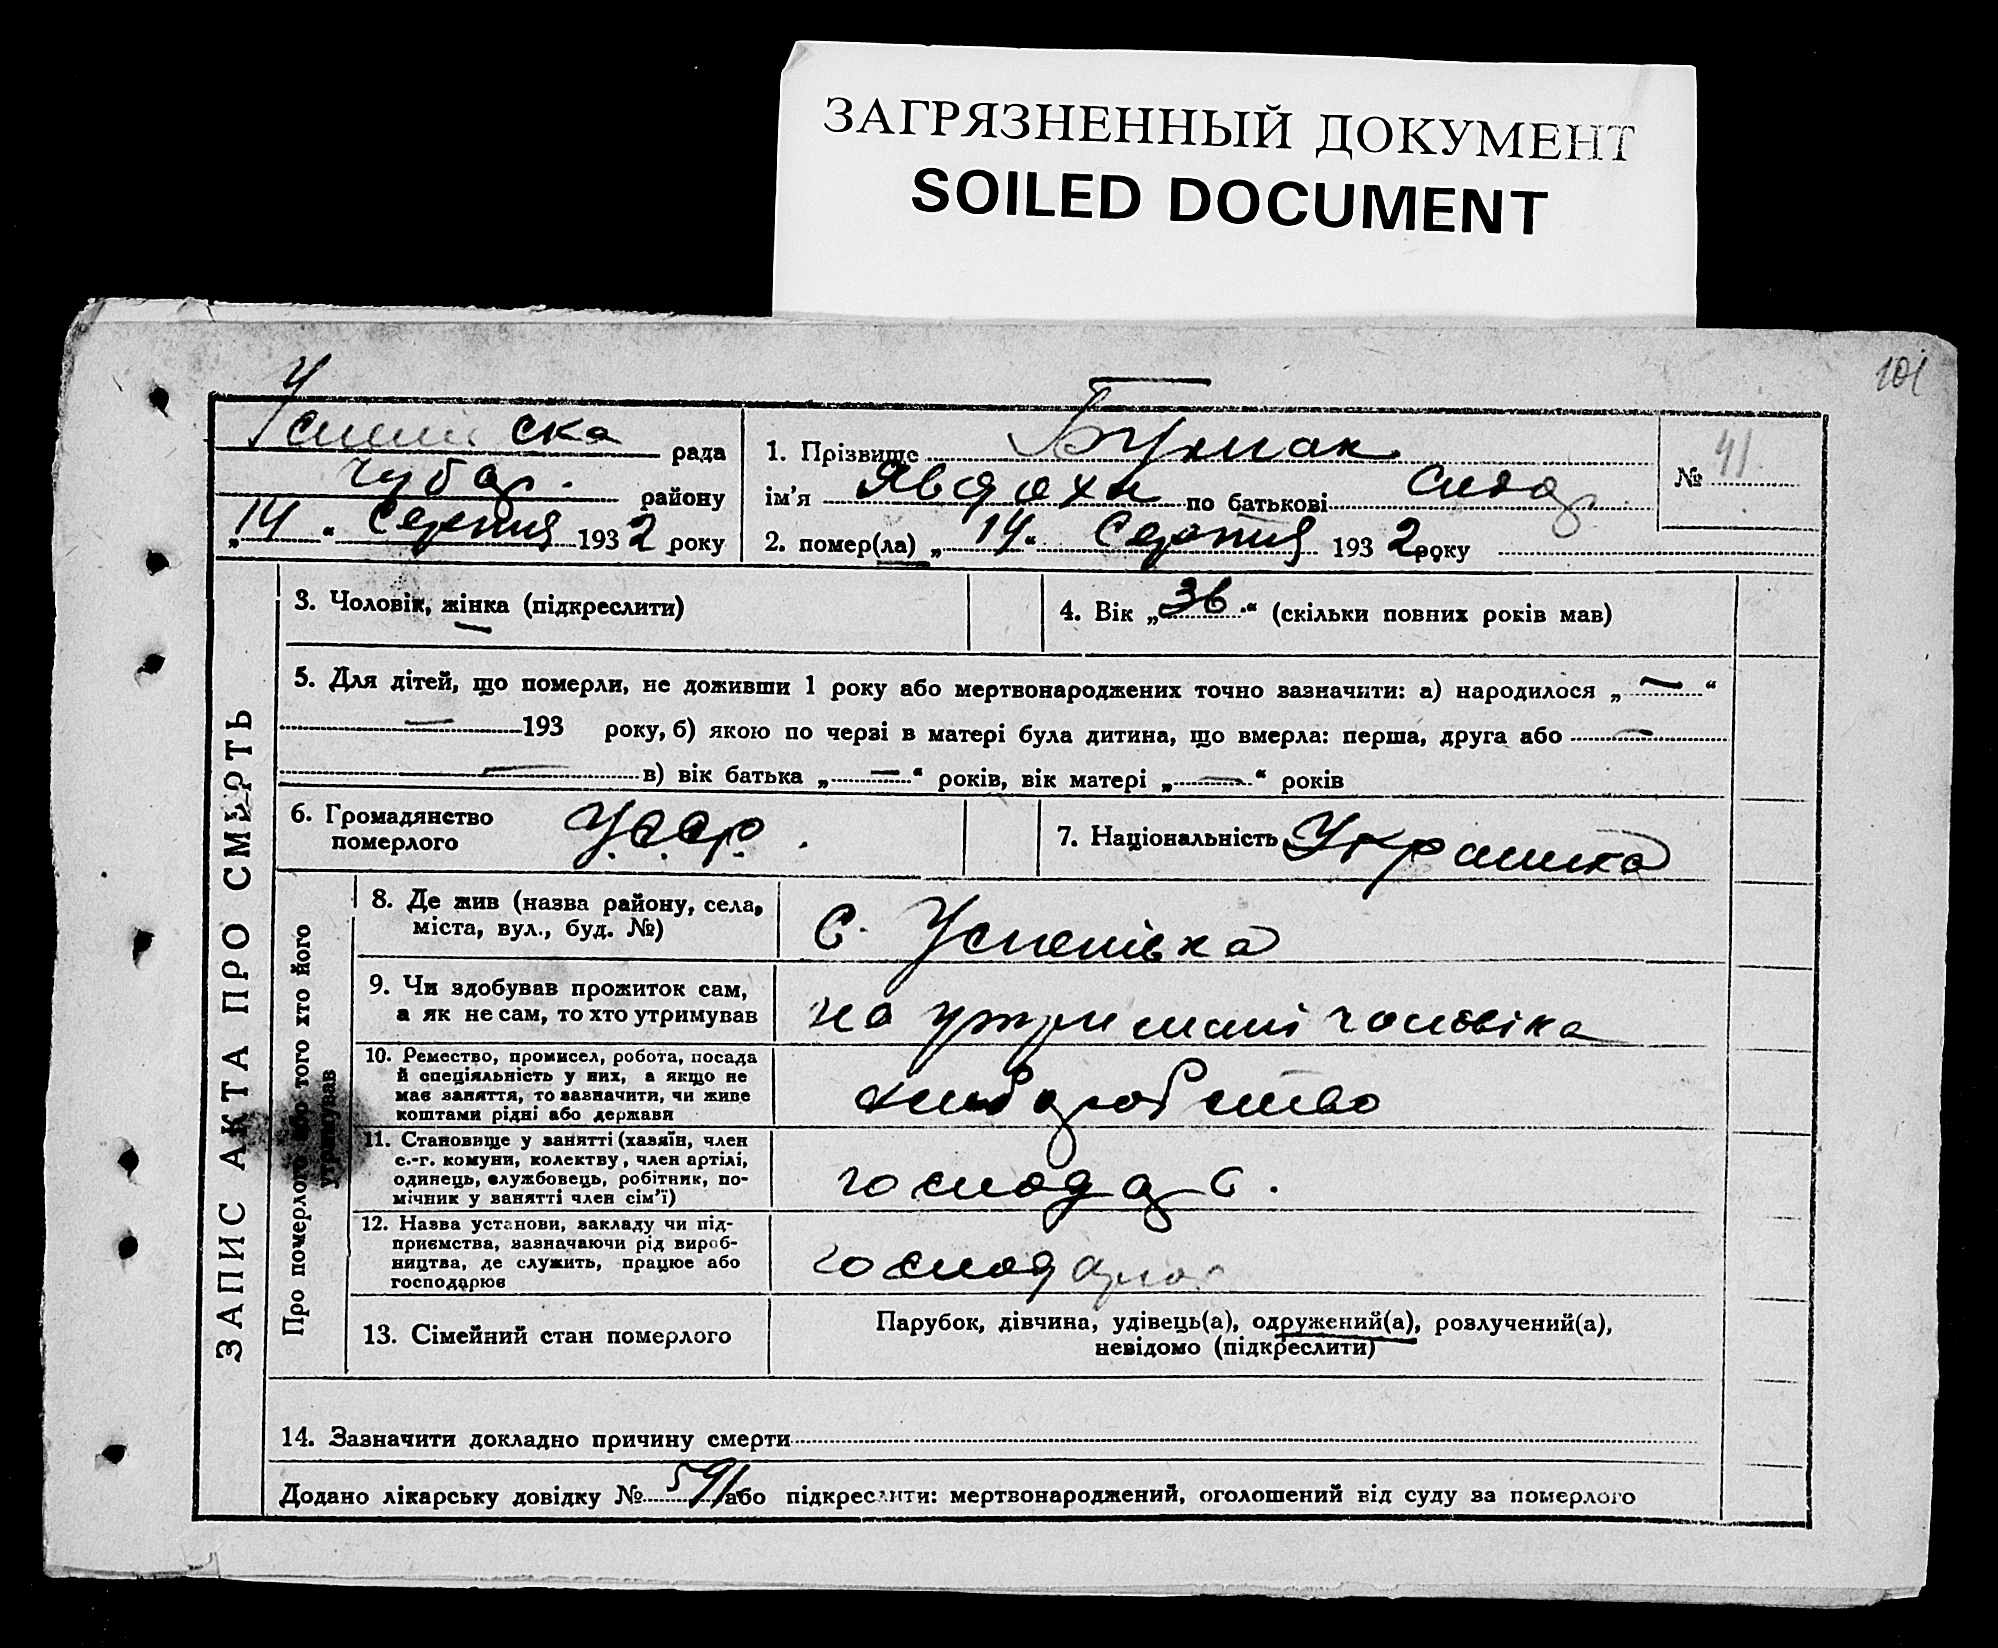 ЗАГРЯЗНЕННЫЙ ДОКУМЕНТ
SOILED DOCUMENT
101
ска рада
Чубар. району
„14“ Серпня 1932 року
1. Прізвище
ім'я Явдоха по батькові Сидор
2. помер(ла) „14“ Серпня 1932 року
№ 41
ЗАПИС АКТА ПРО СМЕРТЬ
3. Чоловік, жінка (підкреслити)
4. Вік „36“ (скільки повних років мав)
5. Для дітей, що померли, не доживши 1 року або мертвонароджених точно зазначити: а) народилося „—“
— 193 року, б) якою по черзі в матері була дитина, що вмерла: перша, друга або —
— в) вік батька „—“ років, вік матері „—“ років
6. Громадянство
померлого
У.С.С.Р.
7. Національність Украинка
Про померлого або того хто його
утримував
8. Де жив (назва району, села,
міста, вул., буд. №)
с. Успенівка
9. Чи здобував прожиток сам,
а як не сам, то хто утримував
на утримані чоловіка
10. Ремество, промисел, робота, посада
й спеціяльність у них, а якщо не
має заняття, то зазначити, чи живе
коштами рідні або держави
хлиборобство
11. Становище у занятті (хазяїн, член
с.-г. комуни, колектву, член артілі,
одинець, службовець, робітник, по-
мічник у занятті член сім'ї)
господар с.
12. Назва установи, закладу чи під-
приємства, зазначаючи рід вироб-
ництва, де служить, працює або
господарює
13. Сімейний стан померлого
Парубок, дівчина, удівець(а), одружений(а), розлучений(а),
невідомо (підкреслити)
14. Зазначити докладно причину смерти
Додано лікарську довідку № 591 або підкреслити: мертвонароджений, оголошений від суду за померлого